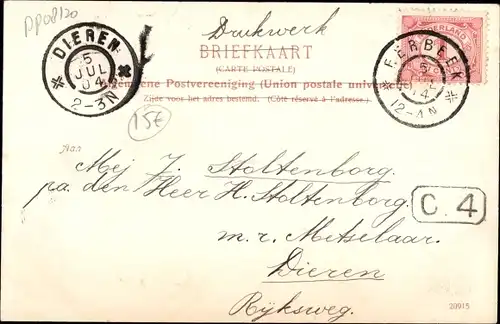 PP08120
Drukwerk
BRIEFKAART
(CARTE POSTALE)
Algemeene Postvereeniging (Union postale universelle)
Zijde voor het adres bestemd. (Côté réservé à l'adresse.)
DIEREN
5
JUL
04
2-3N
EERBEEK
5
4
12-4N
NEDERLAND
15€
Aan
Mej. J. Stoltenborg.
p.a. den Heer H. Stoltenborg.
C. 4
m.r. Metselaar.
Dieren
Rijksweg.
20915